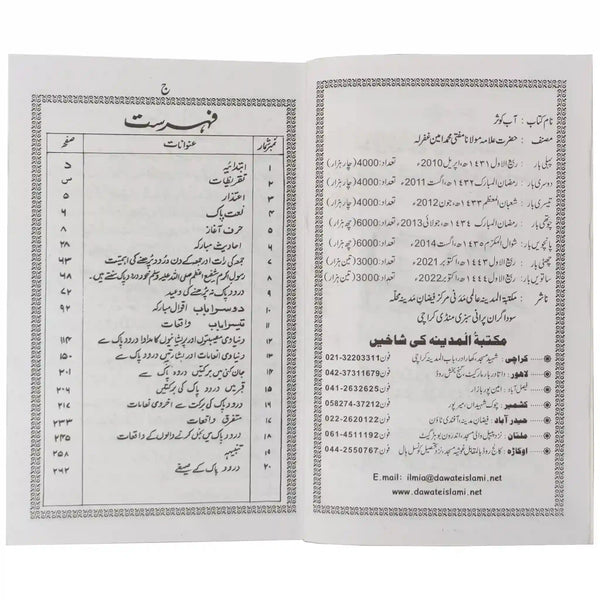 نام کتاب : آب کوثر
مصنف : حضرت علامہ مولانا مفتی محمد امین غفرلہ
پہلی بار : ربیع الاول ۱۴۳۱ھ، اپریل 2010ء تعداد:4000(چار ہزار)
دوسری بار : رمضان المبارک ۱۴۳۲ھ، اگست 2011ء تعداد:4000(چار ہزار)
تیسری بار : شعبان المعظم ۱۴۳۳ھ، جون 2012ء تعداد:4000(چار ہزار)
چوتھی بار : رمضان المبارک ۱۴۳۴ھ، جولائی 2013ء تعداد:6000(چھ ہزار)
پانچویں بار : شوال المکرم ۱۴۳۵ھ، اگست 2014ء تعداد:6000(چھ ہزار)
چھٹی بار : ربیع الاول ۱۴۴۳ھ، اکتوبر 2021ء تعداد:3000(تین ہزار)
ساتویں بار : ربیع الاول ۱۴۴۴ھ، اکتوبر 2022ء تعداد:3000(تین ہزار)
ناشر : مکتبۃ المدینہ عالمی مدنی مرکز فیضان مدینہ محلہ
سوداگران پرانی سبزی منڈی کراچی
مکتبۃ المدینہ کی شاخیں
کراچی : شہید مسجد، کھارادر، باب المدینہ کراچی فون 021-32203311
لاهور : داتا دربار مارکیٹ، گنج بخش روڈ فون 042-37311679
فیصل آباد : امین پور بازار فون 041-2632625
کشمیر : چوک شہیداں، میر پور فون 058274-37212
حیدر آباد : فیضان مدینہ، آفندی ٹاؤن فون 022-2620122
ملتان : نزد پیپل والی مسجد، اندرون بوہڑ گیٹ فون 061-4511192
اوکاڑہ : کالج روڈ بالمقابل غوثیہ مسجد، نزد تحصیل کونسل ہال فون 044-2550767
E.mail: ilmia@dawateislami.net
www.dawateislami.net
ج
فہرست
نمبر شمار عنوانات صفحہ
۱ ابتدائیہ د
۲ تقریظات س
۳ اعتذار ۵
۴ نعت پاک ۶
۵ حرف آغاز ۸
۶ احادیث مبارکہ ۲۸
۷ جمعہ کی رات اور جمعہ کے دن درود پڑھنے کی اہمیت ۶۳
۸ رسول اکرم شفیع اعظم صلی اللہ علیہ وسلم خود درود پاک سنتے ہیں۔ ۶۸
۹ درود پاک نہ پڑھنے کی وعید ۷۲
۱۰ دوسرا باب اقوال مبارکہ ۹۲
۱۱ تیسرا باب واقعات
۱۲ دنیاوی مصیبتوں اور پریشانیوں کا مداوا درود پاک سے ۱۱۴
۱۳ دنیاوی انعامات اور بشارتیں درود پاک سے ۱۵۰
۱۴ جان کنی میں برکتیں درود پاک سے ۲۰۱
۱۵ قبر میں درود پاک کی برکتیں ۲۰۹
۱۶ درود پاک کی برکت سے اخروی نعامات ۲۱۷
۱۷ متفرق واقعات ۲۳۳
۱۸ درود پاک میں بخل کرنے والوں کے واقعات ۲۴۵
۱۹ تنبیہ ۲۵۸
۲۰ درود پاک کے صیغے ۲۶۲